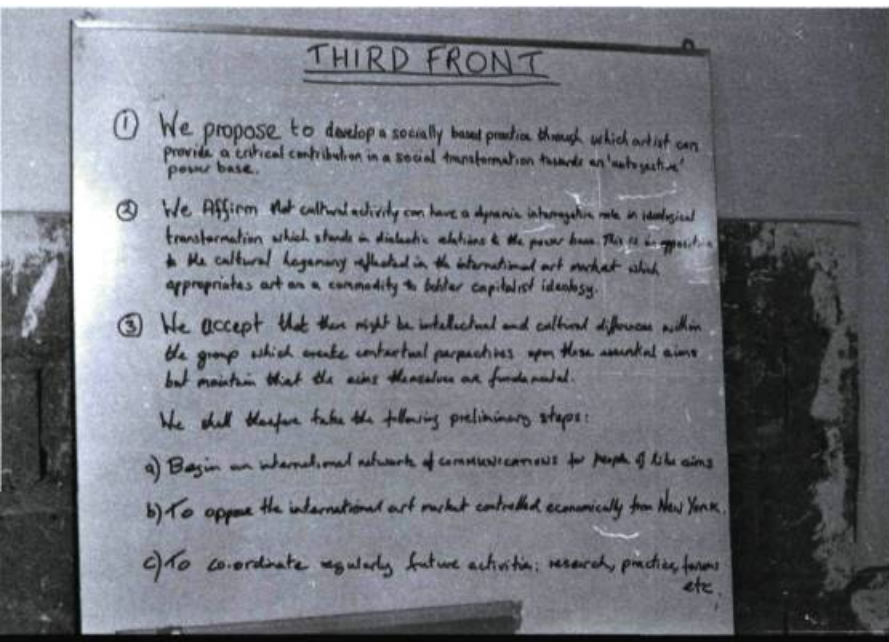 THIRD FRONT
① We propose to develop a socially based practice through which artist can
provide a critical contribution in a social transformation towards an 'autogestive'
power base.
② We Affirm that cultural activity can have a dynamic interrogative role in ideological
transformation which stands in dialectic relations to the power base. This is in opposition
to the cultural hegemony reflected in the international art market which
appropriates art as a commodity to bolster capitalist ideology.
③ We accept that there might be intellectual and cultural differences within
the group which create contextual perspectives upon these essential aims
but maintain that the aims themselves are fundamental.
We shall therefore take the following preliminary steps:
a) Begin an international network of COMMUNICATIONS for people of like aims
b) To oppose the international art market controlled economically from New York.
c) To co-ordinate regularly future activities: research, practice, forums
etc.